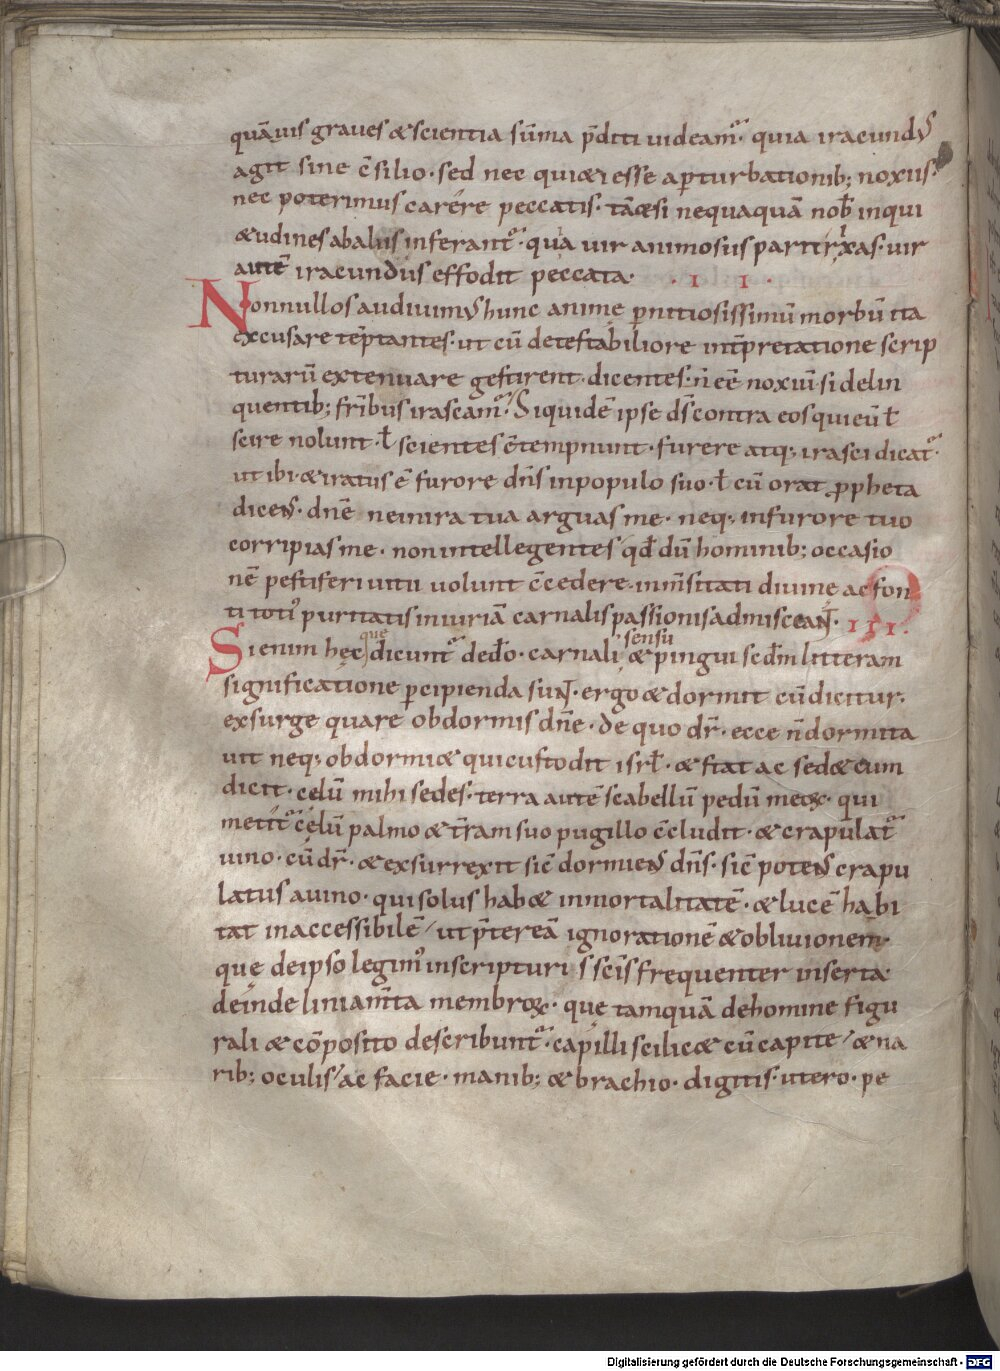 quāuis graues & scientia sūma p̄diti uideam᷑· quia iracund᷒
agit sine c̄silio· sed nec quiæi esse a ꝑturbationib; noxiis·
nec poterimus carére peccatis· tām&si nequaquā nob̄ inqui
&udines ab aliis inferant᷑· quia uir animosus parit rixas· uir
autē iracundus effodit peccata· ·II·
Nonnullos audiuim᷒ hunc anime ꝑnitiosissimū morbū ita
excusare tēptantes· ut eū detestabiliore int̄pretatione scrip
turarū extenuare gestirent· dicentes· n̄ eē noxiū si delin
quentib; fr̄ibus irascam᷑· Siquidē ipse ds̄ contra eos qui eū ł
scire nolunt· ł scientes c̄tempnunt· furere atq; irasci dicat᷑·
ut ibi· & iratus ē furore dn̄s in populo suo· ł cū orat ꝓpheta
dicens· dnē ne in ira tua arguas me· neq; in furore tuo
corripias me· non intellegentes qd̄ dū hominib; occasio
nē pestiferi uitii uolunt c̄cedere· inm̄sitati diuine ac fon
ti toti᷒ puritatis iniuriā carnalis passionis admisceant· ·III·
que sensu
Si enim hec dicunt᷑ de dō· carnali & pingui scdm̄ litteram
significatione ꝑcipienda sunt· ergo & dormit cū dicitur·
exsurge quare obdormis dn̄e· de quo dr̄· ecce n̄ dormita
uit neq; obdormi& qui custodit isrł· & stat ac sed& cum
dicit· celū mihi sedes· terra autē scabellū pedū meoꝝ· qui
metit᷑ celū palmo & tr̄am suo pugillo c̄cludit· & crapulat᷑
uino· cū dr̄· & exsurrexit sic̄ dormiens dn̄s· sic̄ potens crapu
latus a uino· qui solus hab& inmortalitatē· & lucē habi
tat inaccessibilē/ ut p̄tereā ignorationē & obliuionem·
que de ipso legim᷒ in scripturis sc̄is frequenter inserta·
deinde liniam̄ta membroꝝ· que tamquā de homine figu
rali & cōposito describunt᷑· capilli scilic& cū capite/ & na
rib; oculis/ ac facie· manib; & brachio· digitis· utero· pe
Digitalisierung gefördert durch die Deutsche Forschungsgemeinschaft - DFG